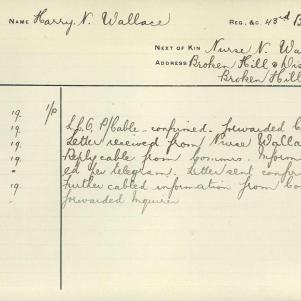 NAME Harry. N. Wallace REG. &C. 43rd B
NEXT OF KIN Nurse N. Wa
ADDRESS Broken Hill & Dis
Broken Hill
19. 1/P
19. Letter received from Nurse Walla
19. Reply cable from Commrs. Inform
" ed per telegram. Letter sent confir
19. Further cabled information from Co
forwarded Inquirer